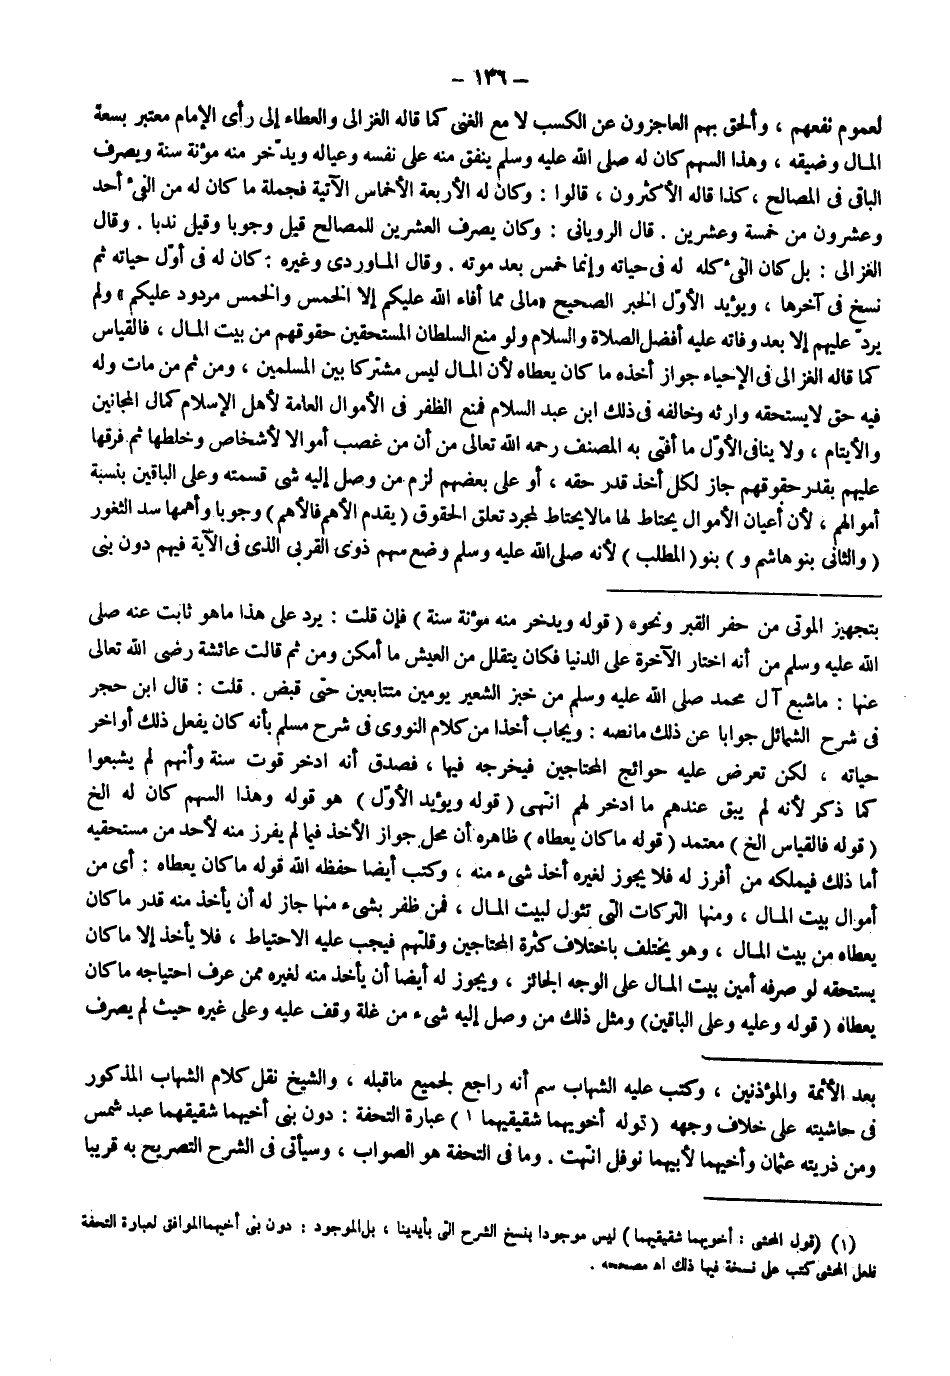 – ١٣٦ –
لعموم نفعهم ، وألحق بهم العاجزون عن الكسب لا مع الغنى كما قاله الغزالى والعطاء إلى رأى الإمام معتبر بسعة
المال وضيقه ، وهذا السهم كان له صلى الله عليه وسلم ينفق منه على نفسه وعياله ويدّخر منه مؤنة سنة ويصرف
الباقى فى المصالح ، كذا قاله الأكثرون ، قالوا : وكان له الأربعة الأخماس الآتية فجملة ما كان له من الفىء أحد
وعشرون من خمسة وعشرين . قال الرويانى : وكان يصرف العشرين للمصالح قيل وجوبا وقيل ندبا . وقال
الغزالى : بل كان الفىء كله له فى حياته وإنما خمس بعد موته . وقال الماوردى وغيره : كان له فى أوّل حياته ثم
نسخ فى آخرها ، ويؤيد الأوّل الخبر الصحيح «مالى مما أفاء الله عليكم إلا الخمس والخمس مردود عليكم» ولم
يردّ عليهم إلا بعد وفاته عليه أفضل الصلاة والسلام ولو منع السلطان المستحقين حقوقهم من بيت المال ، فالقياس
كما قاله الغزالى فى الإحياء جواز أخذه ما كان يعطاه لأن المال ليس مشتركا بين المسلمين ، ومن ثم من مات وله
فيه حق لا يستحقه وارثه وخالفه فى ذلك ابن عبد السلام فمنع الظفر فى الأموال العامة لأهل الإسلام كمال المجانين
والأيتام ، ولا ينافى الأوّل ما أفتى به المصنف رحمه الله تعالى من أن من غصب أموالا لأشخاص وخلطها ثم فرقها
عليهم بقدر حقوقهم جاز لكل أخذ قدر حقه ، أو على بعضهم لزم من وصل إليه شى قسمته وعلى الباقين بنسبة
أموالهم ، لأن أعيان الأموال يحتاط لها مالا يحتاط لمجرد تعلق الحقوق ( يقدم الأهم فالأهم ) وجوبا وأهمها سد الثغور
( والثانى بنو هاشم و ) بنو ( المطلب ) لأنه صلى الله عليه وسلم وضع سهم ذوى القربى الذى فى الآية فيهم دون بنى
بتجهيز الموتى من حفر القبر ونحوه ( قوله ويدخر منه مؤنة سنة ) فإن قلت : يرد على هذا ماهو ثابت عنه صلى
الله عليه وسلم من أنه اختار الآخرة على الدنيا فكان يتقلل من العيش ما أمكن ومن ثم قالت عائشة رضى الله تعالى
عنها : ماشبع آل محمد صلى الله عليه وسلم من خبز الشعير يومين متتابعين حتى قبض . قلت : قال ابن حجر
فى شرح الشمائل جوابا عن ذلك مانصه : ويجاب أخذا من كلام النووى فى شرح مسلم بأنه كان يفعل ذلك أواخر
حياته ، لكن تعرض عليه حوائج المحتاجين فيخرجه فيها ، فصدق أنه ادخر قوت سنة وأنهم لم يشبعوا
كما ذكر لأنه لم يبق عندهم ما ادخر لهم انتهى ( قوله ويؤيد الأوّل ) هو قوله وهذا السهم كان له الخ
( قوله فالقياس الخ ) معتمد ( قوله ما كان يعطاه ) ظاهره أن محل جواز الأخذ فيما لم يفرز منه لأحد من مستحقيه
أما ذلك فيملكه من أفرز له فلا يجوز لغيره أخذ شىء منه ، وكتب أيضا حفظه الله قوله ما كان يعطاه : أى من
أموال بيت المال ، ومنها التركات التى تئول لبيت المال ، فمن ظفر بشىء منها جاز له أن يأخذ منه قدر ما كان
يعطاه من بيت المال ، وهو يختلف باختلاف كثرة المحتاجين وقلتهم فيجب عليه الاحتياط ، فلا يأخذ إلا ما كان
يستحقه لو صرفه أمين بيت المال على الوجه الجائز ، ويجوز له أيضا أن يأخذ منه لغيره ممن عرف احتياجه ما كان
يعطاه ( قوله وعليه وعلى الباقين) ومثل ذلك من وصل إليه شىء من غلة وقف عليه وعلى غيره حيث لم يصرف
بعد الأئمة والمؤذنين ، وكتب عليه الشهاب سم أنه راجع لجميع ماقبله ، والشيخ نقل كلام الشهاب المذكور
فى حاشيته على خلاف وجهه ( قوله أخويهما شقيقيهما ١ ) عبارة التحفة : دون بنى أخيهما شقيقهما عبد شمس
ومن ذريته عثمان وأخيهما لأبيهما نوفل انتهت . وما فى التحفة هو الصواب ، وسيأتى فى الشرح التصريح به قريبا
(١) (قول المحشى : أخويهما شقيقيهما ) ليس موجودا بنسخ الشرح التى بأيدينا ، بل الموجود : دون بنى أخيهما الموافق لعبارة التحفة
فلعل المحشى كتب على نسخة فيها ذلك اه مصححه .